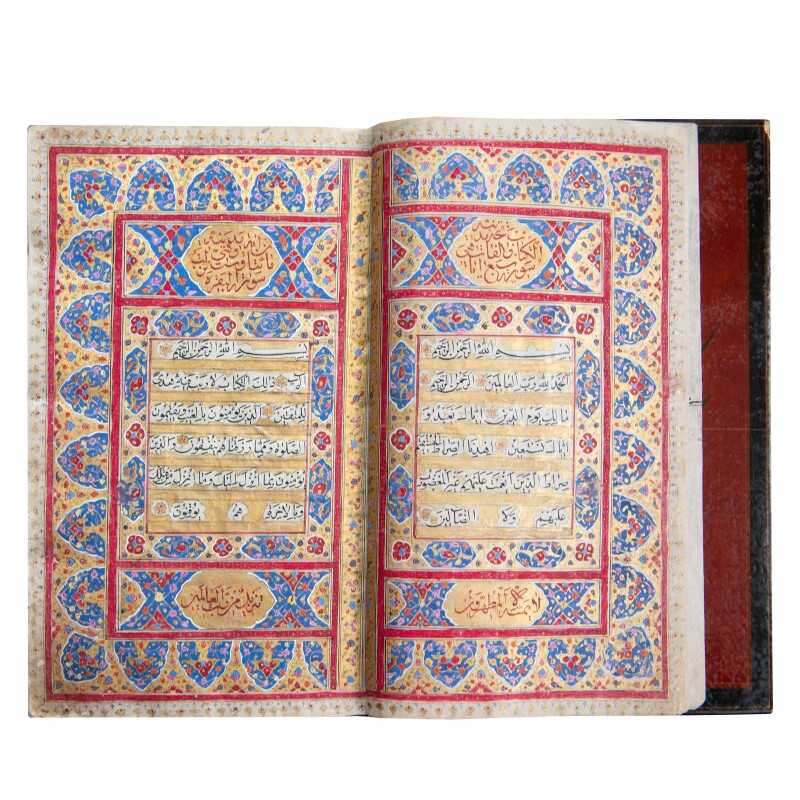 الكتاب
سورة سبع
بسم الله الرحمن الرحيم
الحمد لله رب العالمين الرحمن الرحيم
مالك يوم الدين اياك نعبد و
اياك نستعين اهدنا الصراط المستقيم
صراط الذين انعمت عليهم غير المغضوب
عليهم ولا الضالين
لا يمسه الا المطهرون
سورة البقرة
بسم الله الرحمن الرحيم
الم ذلك الكتاب لا ريب فيه هدى
للمتقين الذين يؤمنون بالغيب ويقيمون
الصلوة ومما رزقناهم ينفقون والذين
يؤمنون بما انزل اليك وما انزل من قبلك
وبالاخرة هم يوقنون
تنزيل من رب العالمين